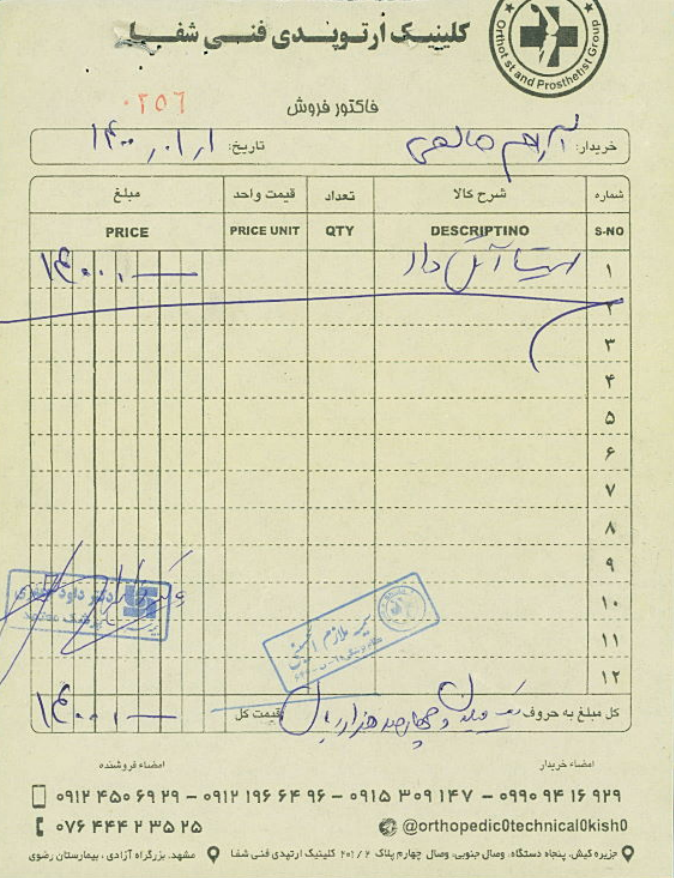 کلینیک ارتوپدی فنی شفا
Orthotist and Prosthetist Group
۰۲۵۶
فاکتور فروش
خریدار:
تاریخ: ۱۴۰۰٫۰۱٫۱
شماره شرح کالا تعداد قیمت واحد مبلغ
S-NO DESCRIPTINO QTY PRICE UNIT PRICE
۱ آتل دار ۱۴۰۰٫۰۰۰
۲
۳
۴
۵
۶
۷
۸
۹
۱۰
۱۱
۱۲
کل مبلغ به حروف یک میلیون و چهارصد هزار ریال قیمت کل
امضاء خریدار امضاء فروشنده
۰۹۱۲ ۴۵۰ ۶۹ ۲۹ – ۰۹۱۲ ۱۹۶ ۶۴ ۹۶ – ۰۹۱۵ ۳۰۹ ۱۴۷ – ۰۹۹۰ ۹۴ ۱۶ ۹۲۹
۰۷۶ ۴۴۴ ۲ ۳۵ ۲۵ @orthopedic0technical0kish0
جزیره کیش، پنجاه دستگاه، وصال جنوبی، وصال چهارم پلاک ۲ / ۲۰۱ کلینیک ارتپدی فنی شفا مشهد، بزرگراه آزادی، بیمارستان رضوی